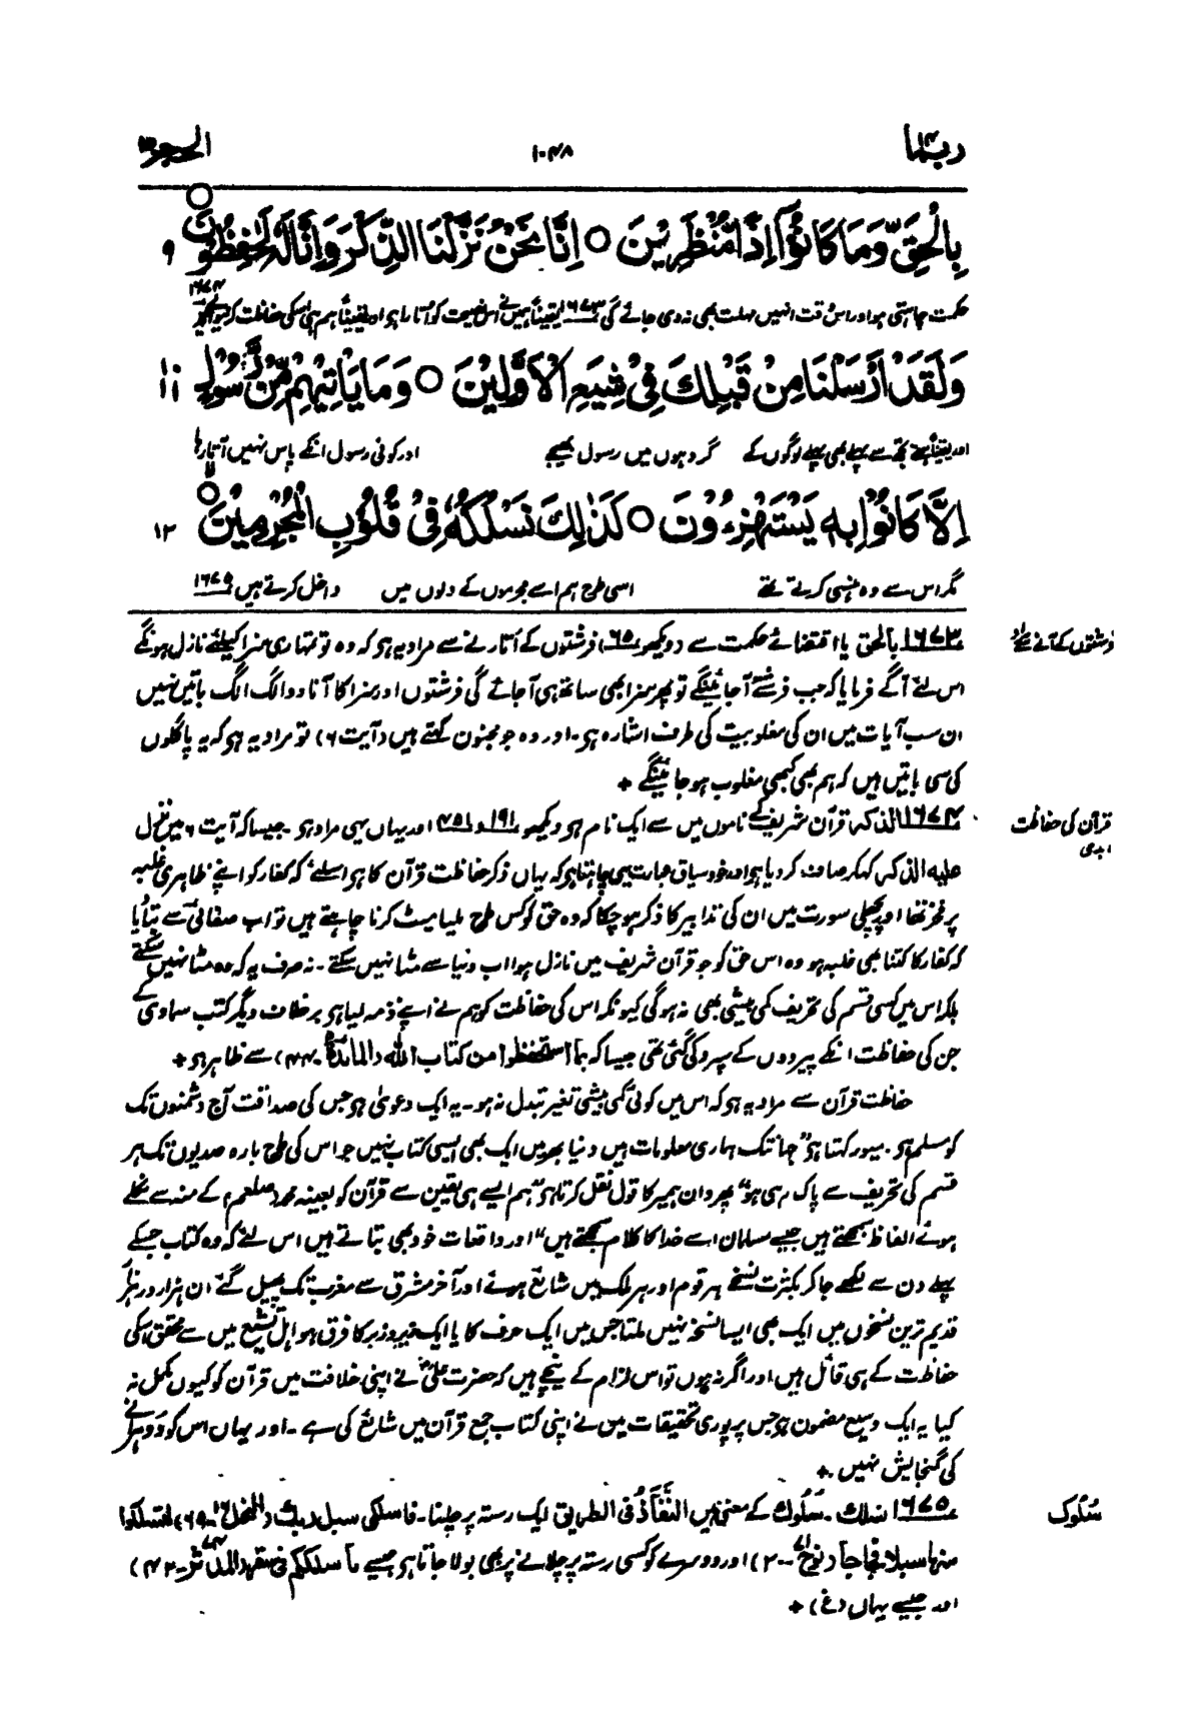 ربما ۱۴
۱۰۴۸
الحجر ۱۵
بِالْحَقِّ وَمَا كَانُوْٓا اِذًا مُّنْظَرِيْنَ ○ اِنَّا نَحْنُ نَزَّلْنَا الذِّكْرَ وَاِنَّا لَهٗ لَحٰفِظُوْنَ ○ ۹
حکمت چاہتی ہو اور اس وقت انہیں مہلت بھی نہ دی جائے گی ۱۶۷۳ یقیناً ہمیں نے اس نصیحت کو اُتارا ہو اور یقیناً ہم ہی اس کی حفاظت کرنیوالے ہیں ۱۶۷۴
وَلَقَدْ اَرْسَلْنَا مِنْ قَبْلِكَ فِيْ شِيَعِ الْاَوَّلِيْنَ ○ وَمَا يَاْتِيْهِمْ مِّنْ رَّسُوْلٍ ۱۰ ۱۱
اور یقیناً ہم نے تجھ سے پہلے بھی پہلے لوگوں کے گروہوں میں رسول بھیجے اور کوئی رسول انکے پاس نہیں آتا رہا
اِلَّا كَانُوْا بِهٖ يَسْتَهْزِءُوْنَ ○ كَذٰلِكَ نَسْلُكُهٗ فِيْ قُلُوْبِ الْمُجْرِمِيْنَ ○ ۱۲
مگر اس سے وہ ہنسی کرتے تھے اسی طرح ہم اسے مجرموں کے دلوں میں داخل کرتے ہیں ۱۶۷۵
۱۶۷۳ بالحق یا اقتضائے حکمت سے (دیکھو ۶۵) فرشتوں کے اُتارنے سے مراد یہ ہو کہ وہ تو تمہاری سزا کیلئے نازل ہونگے
فرشتوں کے آنے سے
اس لئے آگے فرمایا کہ جب فرشتے آجائینگے تو پھر سزا بھی ساتھ ہی آجائے گی فرشتوں اور سزا کا آنا دو الگ الگ باتیں نہیں
ان سب آیات میں ان کی مغلوبیت کی طرف اشارہ ہو۔ اور وہ جو مجنون کہتے ہیں (آیت ۶) تو مراد یہ ہو کہ یہ پاگلوں
کی سی باتیں ہیں کہ ہم بھی کبھی مغلوب ہو جائینگے +
۱۶۷۴ الذکر قرآن شریف کے ناموں میں سے ایک نام ہو دیکھو ۱۹۱ و ۴۵۱ اور یہاں یہی مراد ہو۔ جیسا کہ آیت ۶ میں نزل
قرآن کی حفاظت
ابدی
علیہ الذکر کہکر صاف کر دیا ہو اور خود سیاق عبارت یہی چاہتا ہو کہ یہاں ذکر حفاظت قرآن کا ہو اسلئے کہ کفار کو اپنے ظاہری غلبہ
پر فخر تھا اور پچھلی سورت میں ان کی تدابیر کا ذکر ہو چکا کہ وہ حق کو کس طرح ملیامیٹ کرنا چاہتے ہیں تو اب صفائی سے بتایا
کہ کفار کا کتنا بھی غلبہ ہو وہ اس حق کو جو قرآن شریف میں نازل ہوا اب دنیا سے مٹا نہیں سکتے۔ نہ صرف یہ کہ وہ مٹا نہیں سکتے
بلکہ اس میں کسی قسم کی تحریف کمی بیشی بھی نہ ہوگی کیونکہ اس کی حفاظت کو ہم نے اپنے ذمہ لیا ہو برخلاف دیگر کتب سماوی کے
جن کی حفاظت انکے پیرووں کے سپرد کی گئی تھی جیسا کہ بما استحفظوا من کتاب اللہ (المائدۃ ۔ ۴۴) سے ظاہر ہو +
حفاظت قرآن سے مراد یہ ہو کہ اس میں کوئی کمی بیشی تغیر تبدل نہ ہو۔ یہ ایک دعویٰ ہو جس کی صداقت آج دشمنوں تک
کو مسلم ہو۔ میور کہتا ہو "جہانتک ہماری معلومات ہیں دنیا بھر میں ایک بھی ایسی کتاب نہیں جو اس کی طرح بارہ صدیوں تک ہر
قسم کی تحریف سے پاک رہی ہو" پھر وان ہیمر کا قول نقل کرتا ہو "ہم ایسے ہی یقین سے قرآن کو بعینہ محمد (صلعم) کے منہ سے نکلے
ہوئے الفاظ سمجھتے ہیں جیسے مسلمان اسے خدا کا کلام سمجھتے ہیں" اور واقعات خود بھی بتاتے ہیں اس لئے کہ وہ کتاب جسکے
پہلے دن سے لکھے جا کر بکثرت نسخے ہر قوم اور ہر ملک میں شائع ہوئے اور آخر مشرق سے مغرب تک پھیل گئے ان ہزار در ہزار
قدیم ترین نسخوں میں ایک بھی ایسا نسخہ نہیں ملتا جس میں ایک حرف کا یا ایک زیر و زبر کا فرق ہو اہل تشیع میں سے محقق اسکی
حفاظت کے ہی قائل ہیں اور اگر نہ ہوں تو اس الزام کے نیچے ہیں کہ حضرت علیؓ نے اپنی خلافت میں قرآن کو کیوں مکمل نہ
کیا یہ ایک وسیع مضمون ہو جس پر پوری تحقیقات میں نے اپنی کتاب جمع قرآن میں شائع کی ہے۔ اور یہاں اس کو دوہرانے
کی گنجایش نہیں +
۱۶۷۵ نسلك۔ سُلُوك کے معنی ہیں النَّفَاذُ فی الطریق ایک رستہ پر چلنا۔ فاسلکی سبل ربك (النحل ۱۶۔ ۶۹) لتسلکوا
سُلُوک
منھا سبلا فجاجا (نوح ۷۱۔ ۲۰) اور دوسرے کو کسی رستہ پر چلانے پر بھی بولا جاتا ہو جیسے ما سلککم فی سقر (المدثر ۷۴۔ ۴۲)
اور جیسے یہاں (غ) +